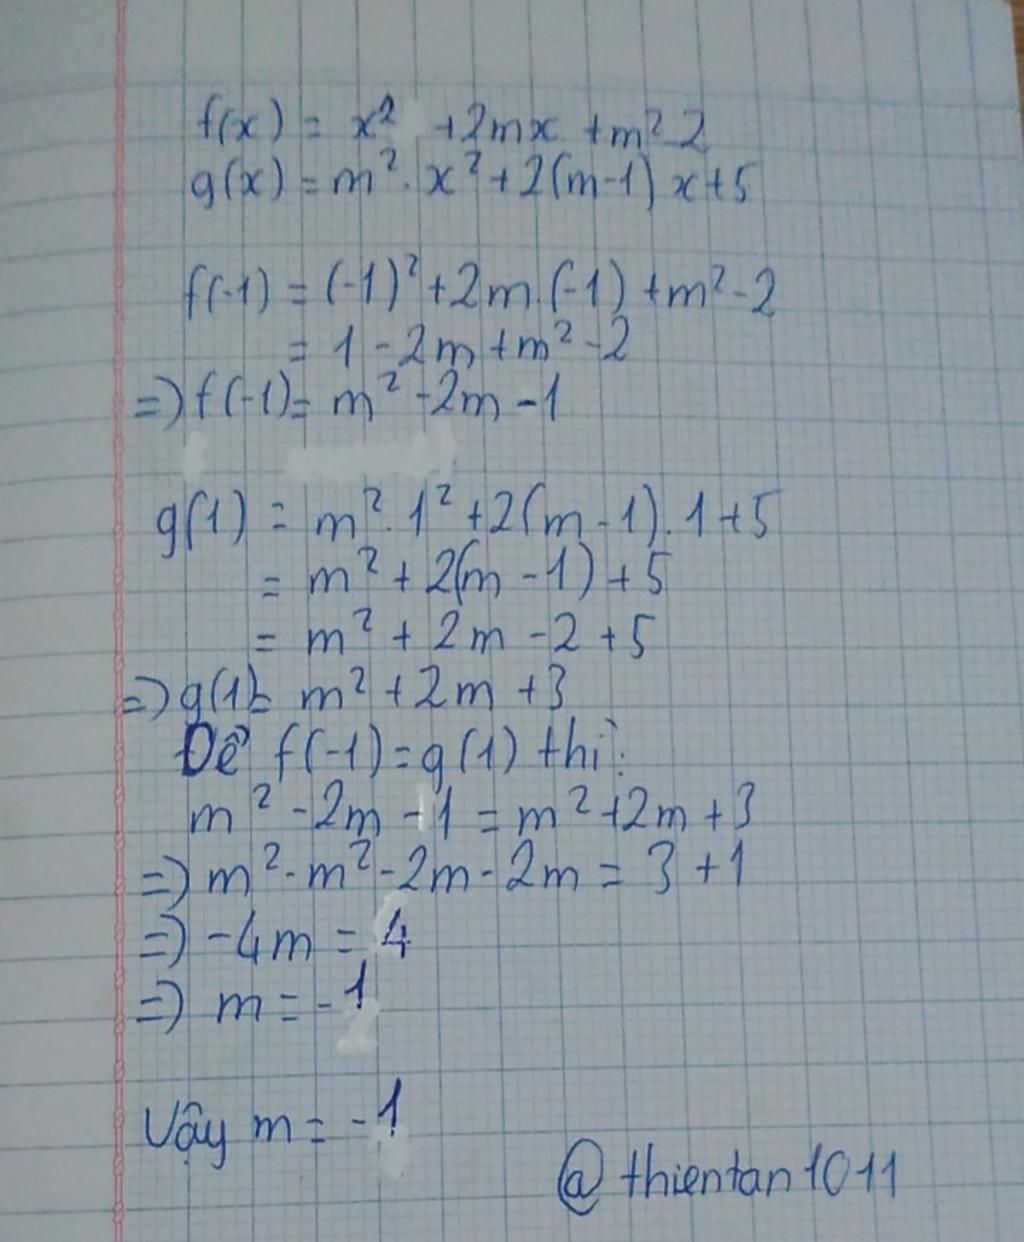 f(x) = x² + 2mx + m² - 2
g(x) = m² . x² + 2(m-1) x + 5
f(-1) = (-1)² + 2m.(-1) + m² - 2
= 1 - 2m + m² - 2
=> f(-1) = m² - 2m - 1
g(1) = m² . 1² + 2(m - 1) . 1 + 5
= m² + 2(m - 1) + 5
= m² + 2m - 2 + 5
=> g(1) = m² + 2m + 3
Để f(-1) = g(1) thì:
m² - 2m - 1 = m² + 2m + 3
=> m² - m² - 2m - 2m = 3 + 1
=> -4m = 4
=> m = -1
Vậy m = -1
@thientan1011